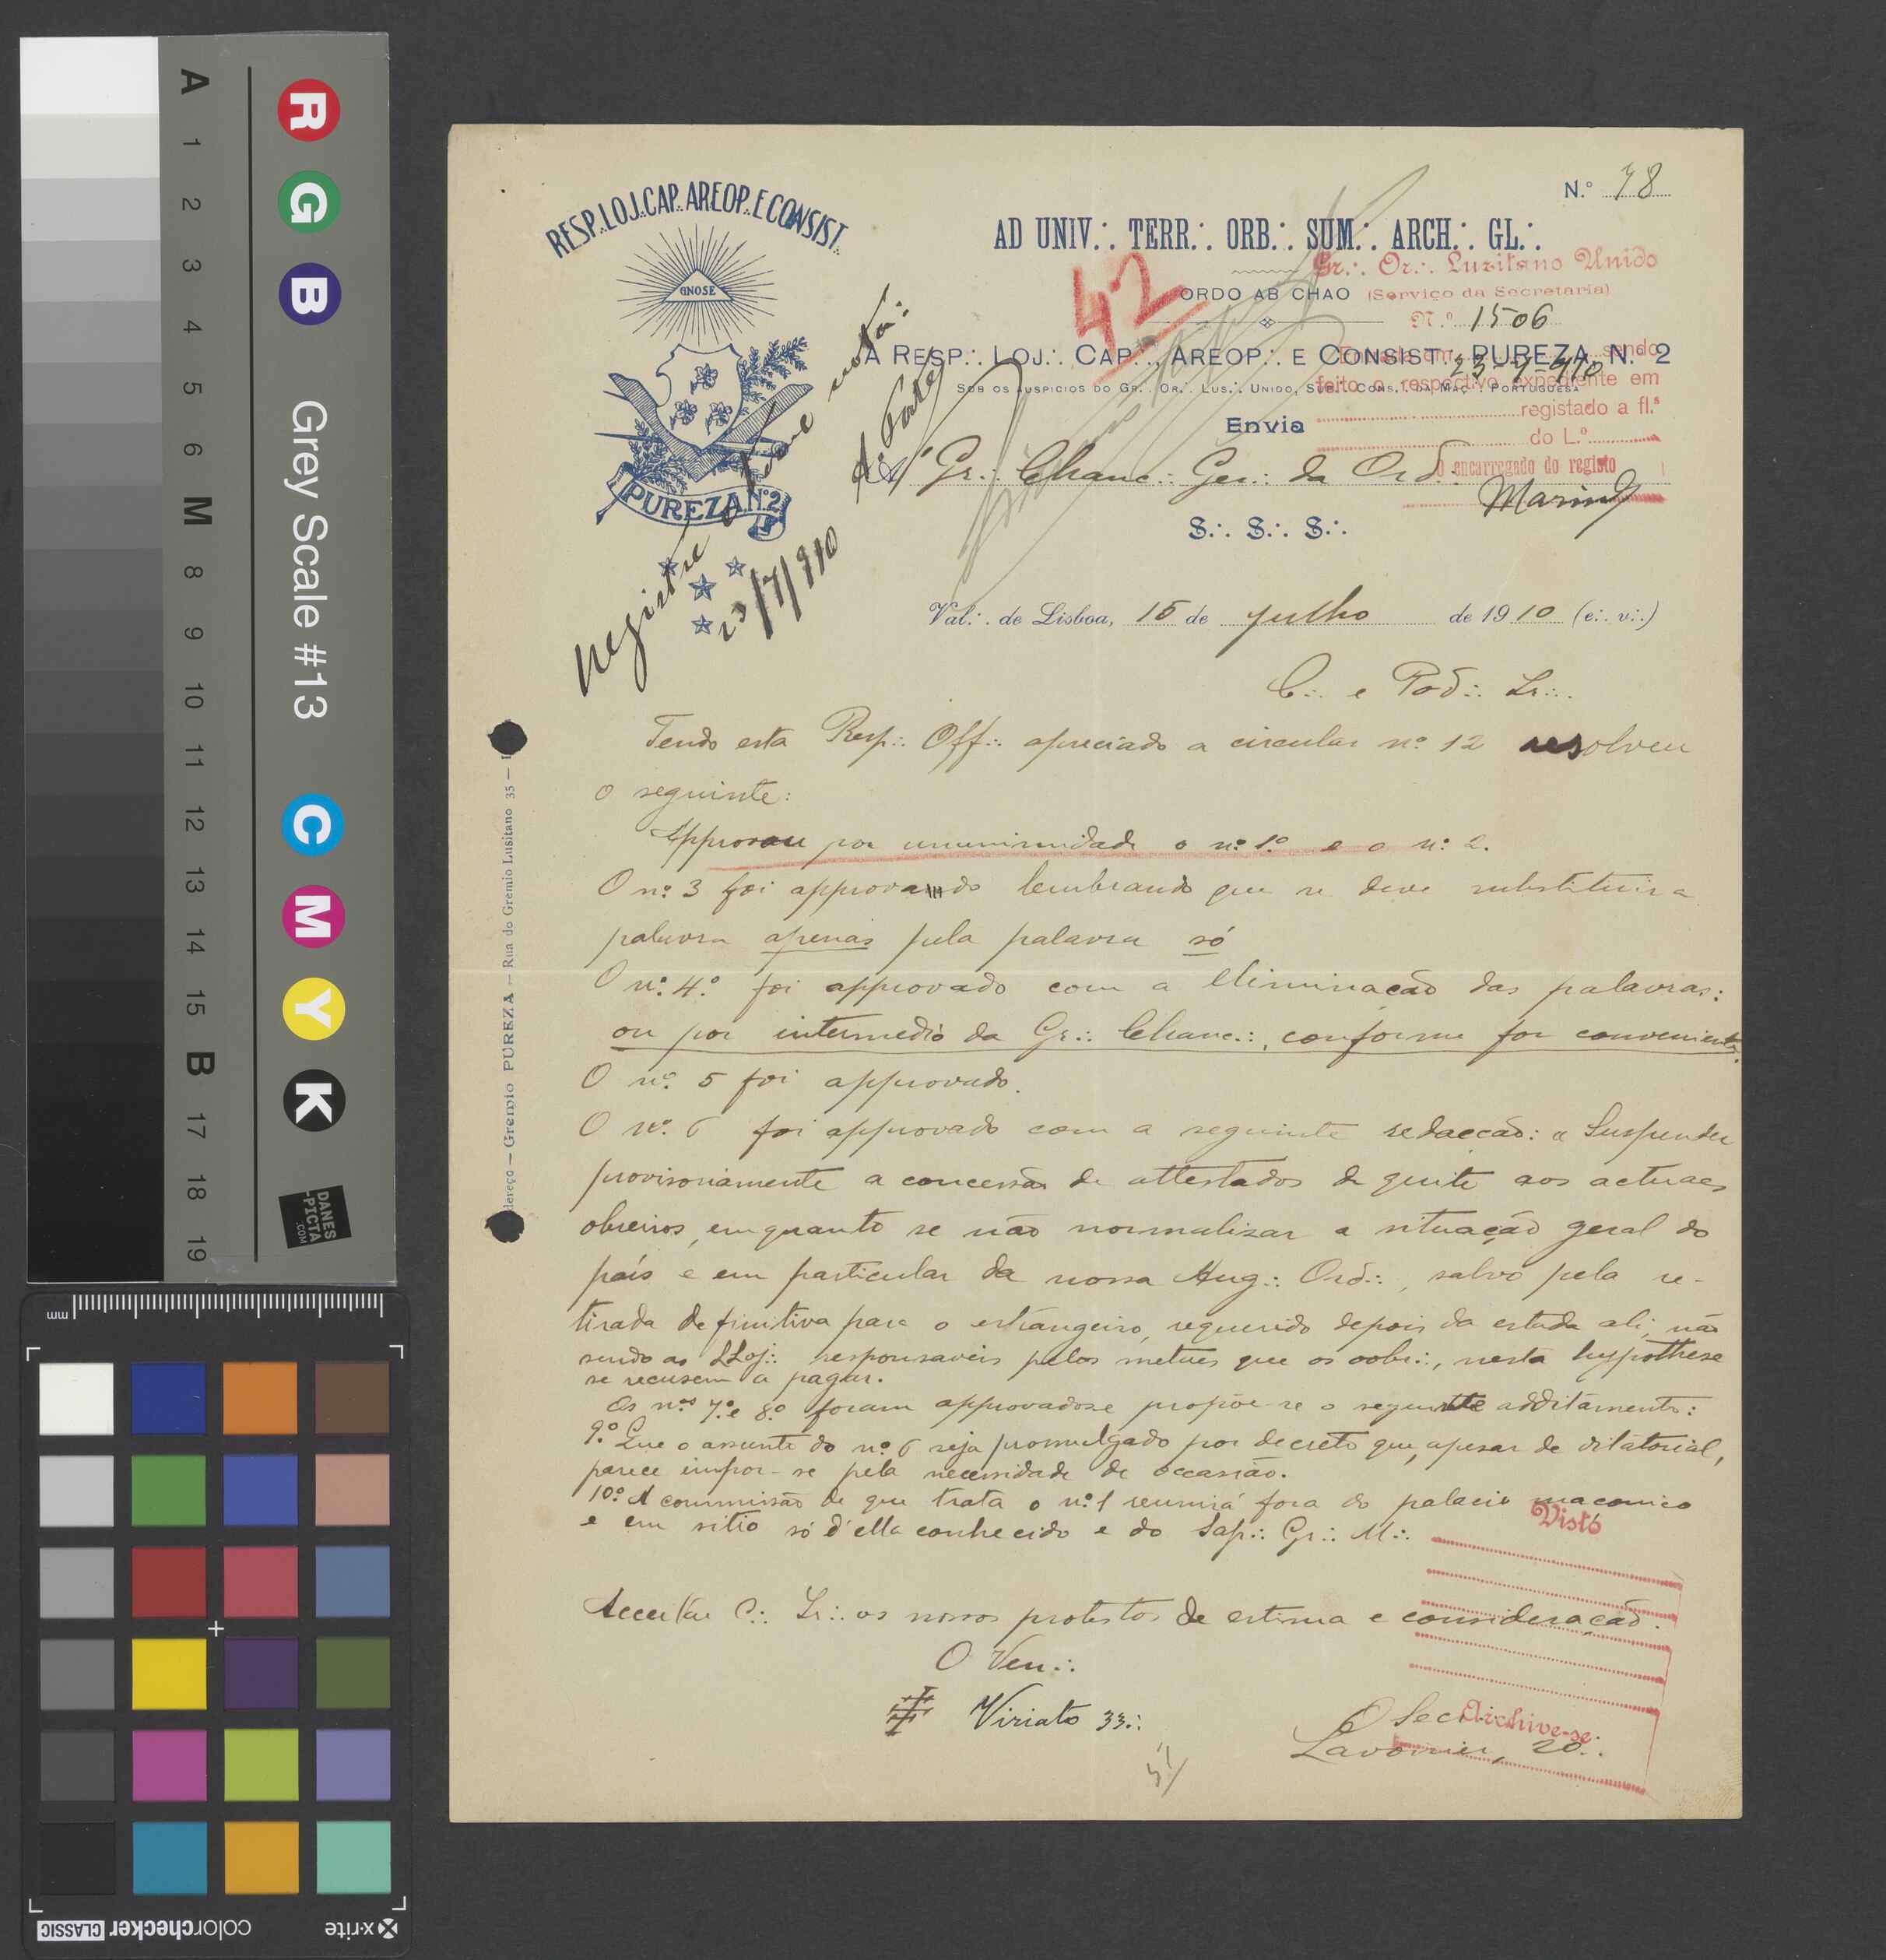 N.º 78
RESP∴ LOJ∴ CAP∴ AREOP∴ E CONSIST∴
GNOSE
PUREZA Nº 2
AD UNIV∴ TERR∴ ORB∴ SUM∴ ARCH∴ GL∴
Gr∴ Or∴ Luzitano Unido
ORDO AB CHAO
(Serviço da Secretaria)
N.º 1506
42
A RESP∴ LOJ∴ CAP∴, AREOP∴ E CONSIST∴ PUREZA, N.º 2
Entrada em 23-7-910 sendo
SOB OS AUSPICIOS DO GR∴ OR∴ LUS∴ UNIDO, SUP∴ CONS∴ DA MAÇ∴ PORTUGUESA
feito o respectivo expediente em
registado a fl.ˢ
do L.º
O encarregado do registo
Envia
Á Gr∴ Chanc∴ Ger∴ da Ord∴
S∴ S∴ S∴
Registre e tome nota:
23/7/910
Val∴ de Lisboa, 15 de julho de 1910 (e∴ v∴)
C∴ e Pod∴ Ir∴
Tendo esta Resp∴ Off∴ apreciado a circular nº 12 resolveu
o seguinte:
Approvou por unanimidade o nº 1º e o nº 2.
O nº 3 foi approvado lembrando que se deve substituir a
palavra apenas pela palavra só
O nº 4º foi approvado com a eliminação das palavras:
ou por intermedio da Gr∴ Chanc∴, conforme for conveniente.
O nº 5 foi approvado.
O nº 6 foi approvado com a seguinte redacção: « Suspender
provisoriamente a concessão de attestados de quite aos actuaes
obreiros, emquanto se não normalisar a situação geral do
país e em particular da nossa Aug∴ Ord∴, salvo pela re-
tirada definitiva para o estrangeiro, requerido depois da estada ali, não
sendo as LLoj∴ responsaveis pelos metaes que os oobr∴, nesta hypothese
se recusem a pagar.
Os nºs 7º e 8º foram approvados e propõe-se o seguinte additamento:
9º Que o assunto do nº 6 seja promulgado por decreto que, apesar de ditatorial,
parece impor-se pela necessidade de occasião.
10º A commissão de que trata o nº 1 reunirá fora do palacio maçonico
e em sitio só d'ella conhecido e do Sap∴ Gr∴ M∴
Visto
Acceitae C∴ Ir∴ os nossos protestos de estima e consideração.
O Ven∴
Viriato 33∴
O Secr∴
Archive-se
Lavoisier, 20∴
dereço — Gremio PUREZA — Rua do Gremio Lusitano 35 —
Grey Scale #13
A 1 2 3 4 5 6 M 8 9 10 11 12 13 14 15 B 17 18 19
R G B C M Y K
DANES
-PICTA
.COM
mm
x-rite
colorchecker CLASSIC